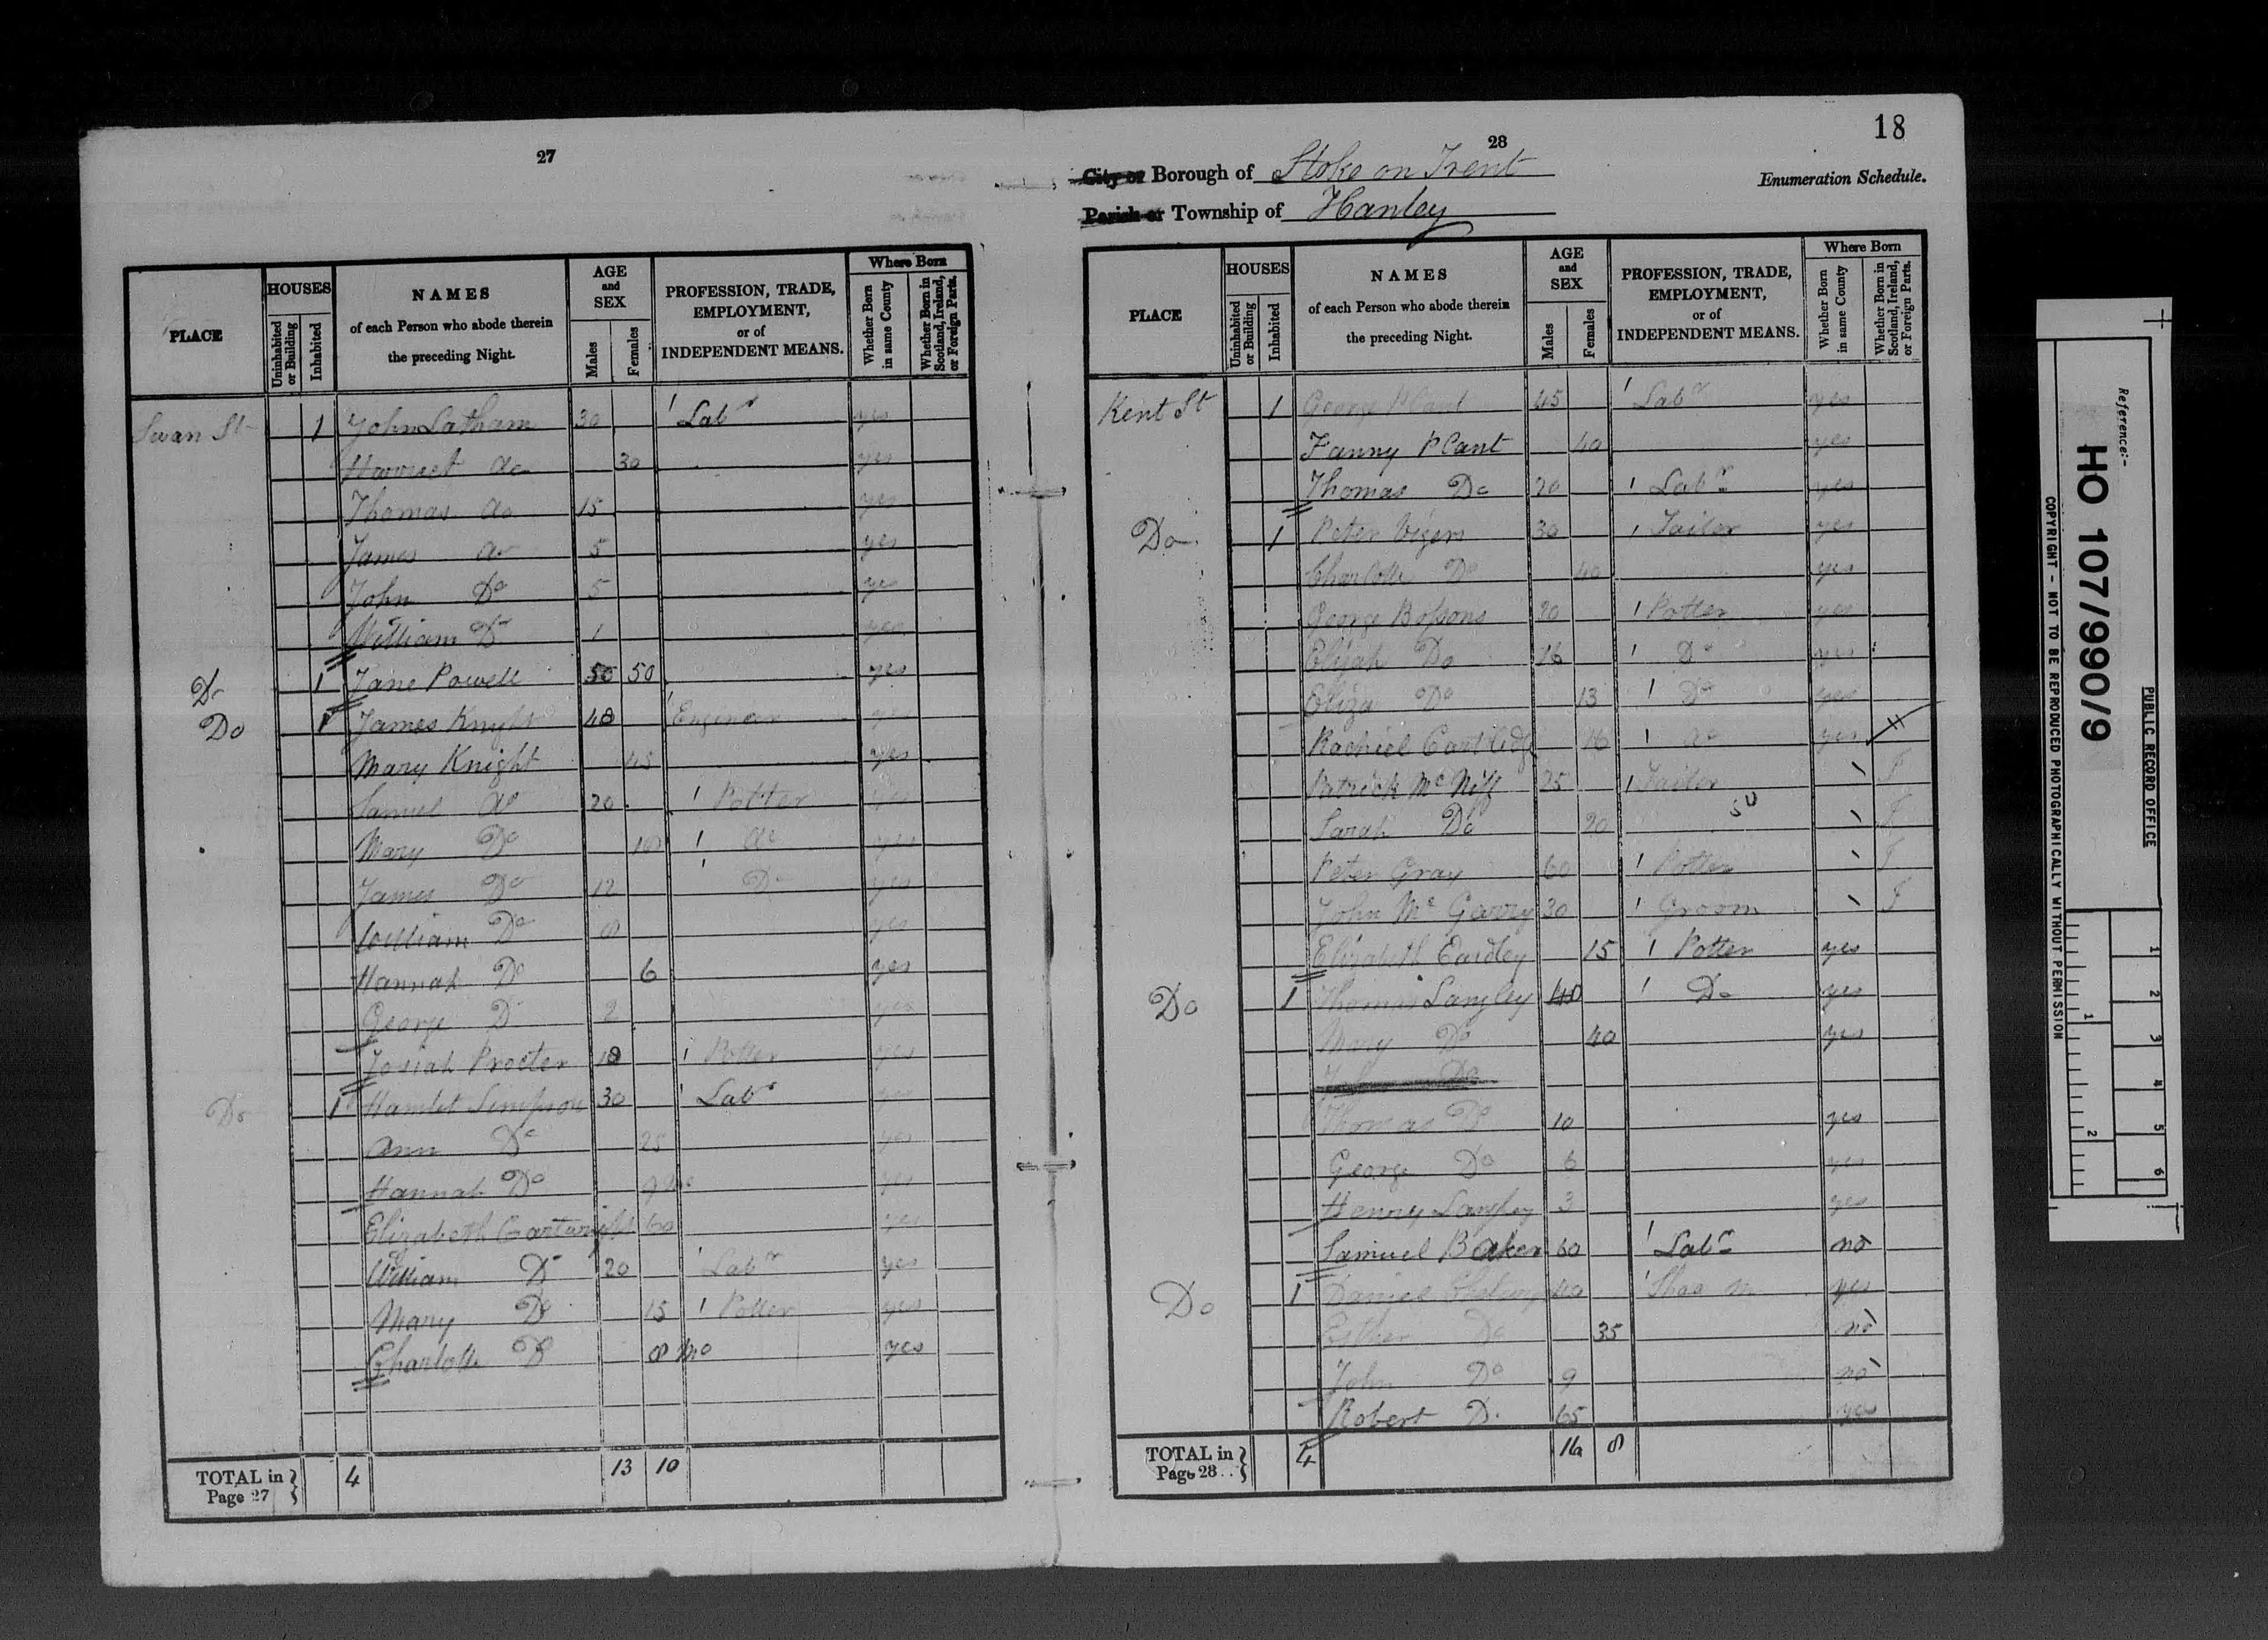 27
PLACE
HOUSES
Uninhabited or Building
Inhabited
NAMES
of each Person who abode therein
the preceding Night.
AGE and SEX
Males
Females
PROFESSION, TRADE, EMPLOYMENT, or of INDEPENDENT MEANS.
Where Born
Whether Born in same County
Whether Born in Scotland, Ireland, or Foreign Parts.
Swan St 1 John Latham 30 Labr yes
Harriet do 30 yes
Thomas do 15 yes
James do 5 yes
John Do 5 yes
William Do 1 yes
Do 1 Jane Powell 50 50 yes
Do 1 James Knight 48 Engineer yes
Mary Knight 45 yes
Samuel do 20 Potter yes
Mary Do do yes
James Do 12 Do yes
William Do 8 yes
Hannah Do 6 yes
George D 2 yes
Josiah Procter 18 Potter yes
Do 1 Hamlet Simpson 30 Labr yes
Ann Do 25 yes
Hannah Do 9 Mo yes
Elizabeth Cartwright 60 yes
William Do 20 Labr yes
Mary Do 15 Potter yes
Charlotte Do 8 Mo yes
TOTAL in Page 27 4 13 10
28
18
City or Borough of Stoke on Trent
Enumeration Schedule.
Parish or Township of Hanley
PLACE
HOUSES
Uninhabited or Building
Inhabited
NAMES
of each Person who abode therein
the preceding Night.
AGE and SEX
Males
Females
PROFESSION, TRADE, EMPLOYMENT, or of INDEPENDENT MEANS.
Where Born
Whether Born in same County
Whether Born in Scotland, Ireland, or Foreign Parts.
Kent St 1 George Plant 45 Labr yes
Fanny Plant 40 yes
Thomas Do 20 Labr yes
Do 1 Peter Vigers 30 Tailor yes
Charlotte Do 40 yes
George Bossons 20 Potter yes
Elijah Do 16 Do yes
Eliza Do 13 Do yes
Rachiel Cartlidge 16 do yes
Patrick Mc Niff 25 Tailor I
Sarah Do 20 I
Peter Gray 60 Potter I
John Mc Garry 30 Groom I
Elizabeth Eardley 15 Potter yes
Do 1 Thomas Langley 40 Do yes
Mary Do 40 yes
Thomas Do 10 yes
George Do 6 yes
Henry Langley 3 yes
Samuel Baker 60 Labr no
Do 1 Daniel 40 Shoe M yes
Esther Do 35 no
John Do 9 no
Robert D. 65 yes
TOTAL in Page 28 4 16 8
Reference:-
HO 107/990/9
PUBLIC RECORD OFFICE
COPYRIGHT - NOT TO BE REPRODUCED PHOTOGRAPHICALLY WITHOUT PERMISSION
1 2 3 4 5 6
1 2